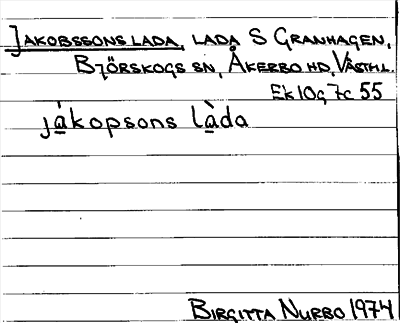 JAKOBSSONS LADA, LADA S GRANHAGEN,
BJÖRSKOGS SN, ÅKERBO HD, VÄSTML.
Ek 10g 7c 55
jákopsons làda
BIRGITTA NURBO 1974